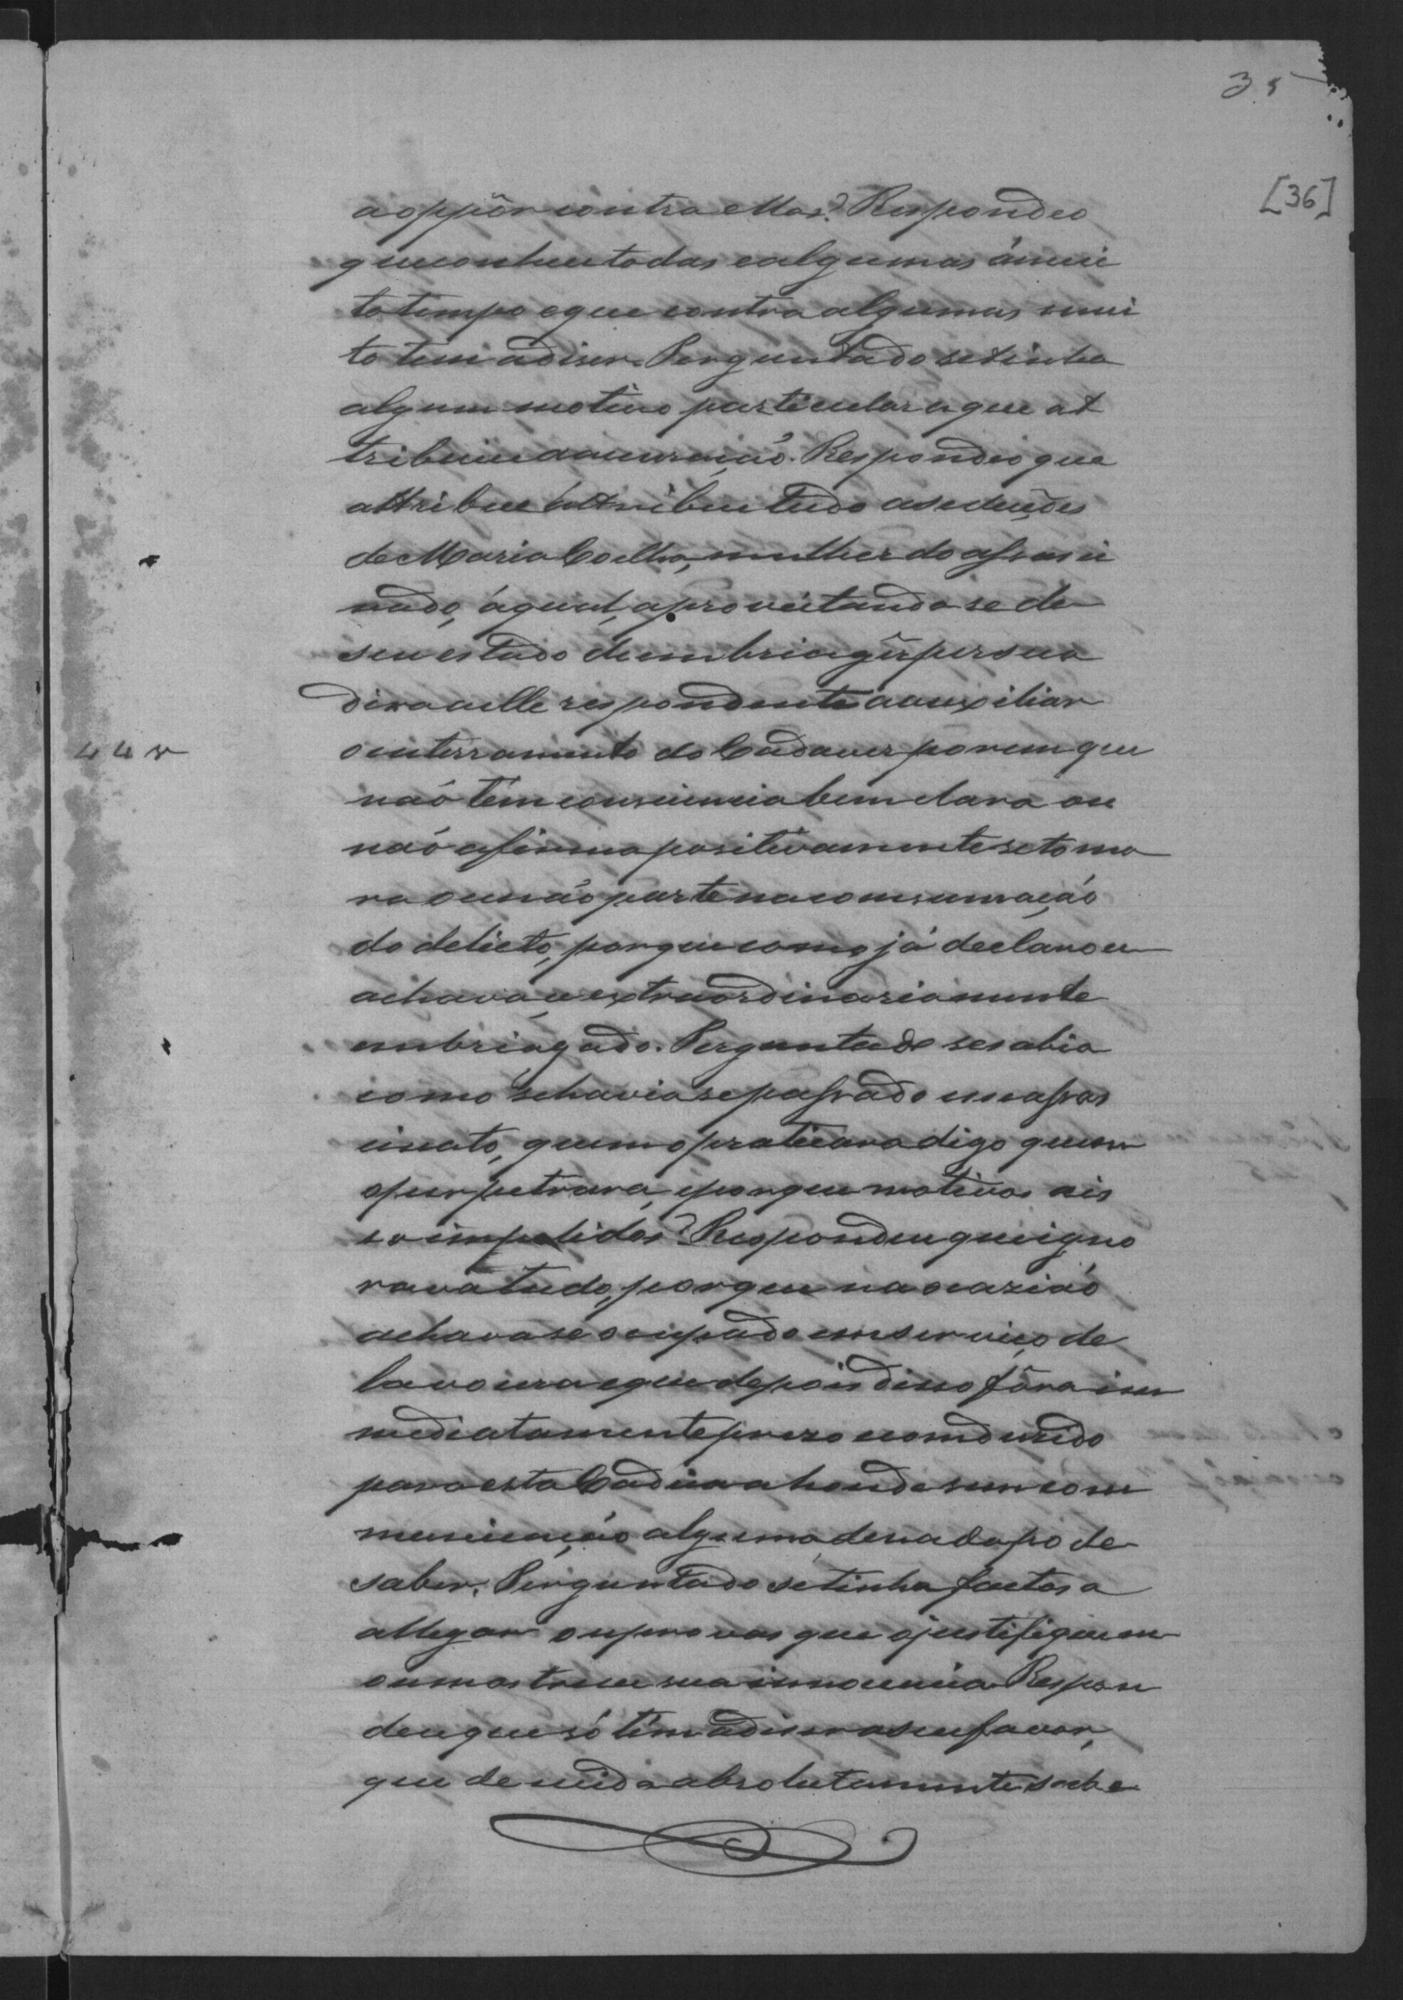 35
[36]
a oppôr contra ellas? Respondeo
que conhece todas e algumas á mui
to tempo e que contra algumas mui
to tem a diser. Perguntado se tinha
algum motivo particular a que at
tribuiu a accusação. Respondeo que
attribue attribue tudo a seduções
de Maria Coelho, mulher do assassi
nado, á qual, aproveitando se de
seu estado de embriaguês persua
dira a elle respondente a auxiliar
o enterramento do Cadaver porem que
naó têm consciencia bem clara ou
naó afirma positivamente se toma
ra ou não parte na consumação
do delicto, porque como já declarou
achava-se extraordinariamente
embriagado. Perguntado se sabia
como se havia se passado o assas
sinato, quem o praticara digo quem
o perpetrara, e porque motivos a is
so impelidos? Respondeu que igno
rava tudo, porque na ocazião
achava se occupado em serviço de
lavoura e que depois disso fôra im
mediatamente prezo e comdusido
para esta Cadeia ahonde sem com
municação alguma, de nada pode
saber. Perguntado se tinha factos a
allegar ou provas que o justifiquem
ou mostrem sua innocencia. Respon
deu que só têm a diser a seu favor,
que de nada absolutamente sabe
44v